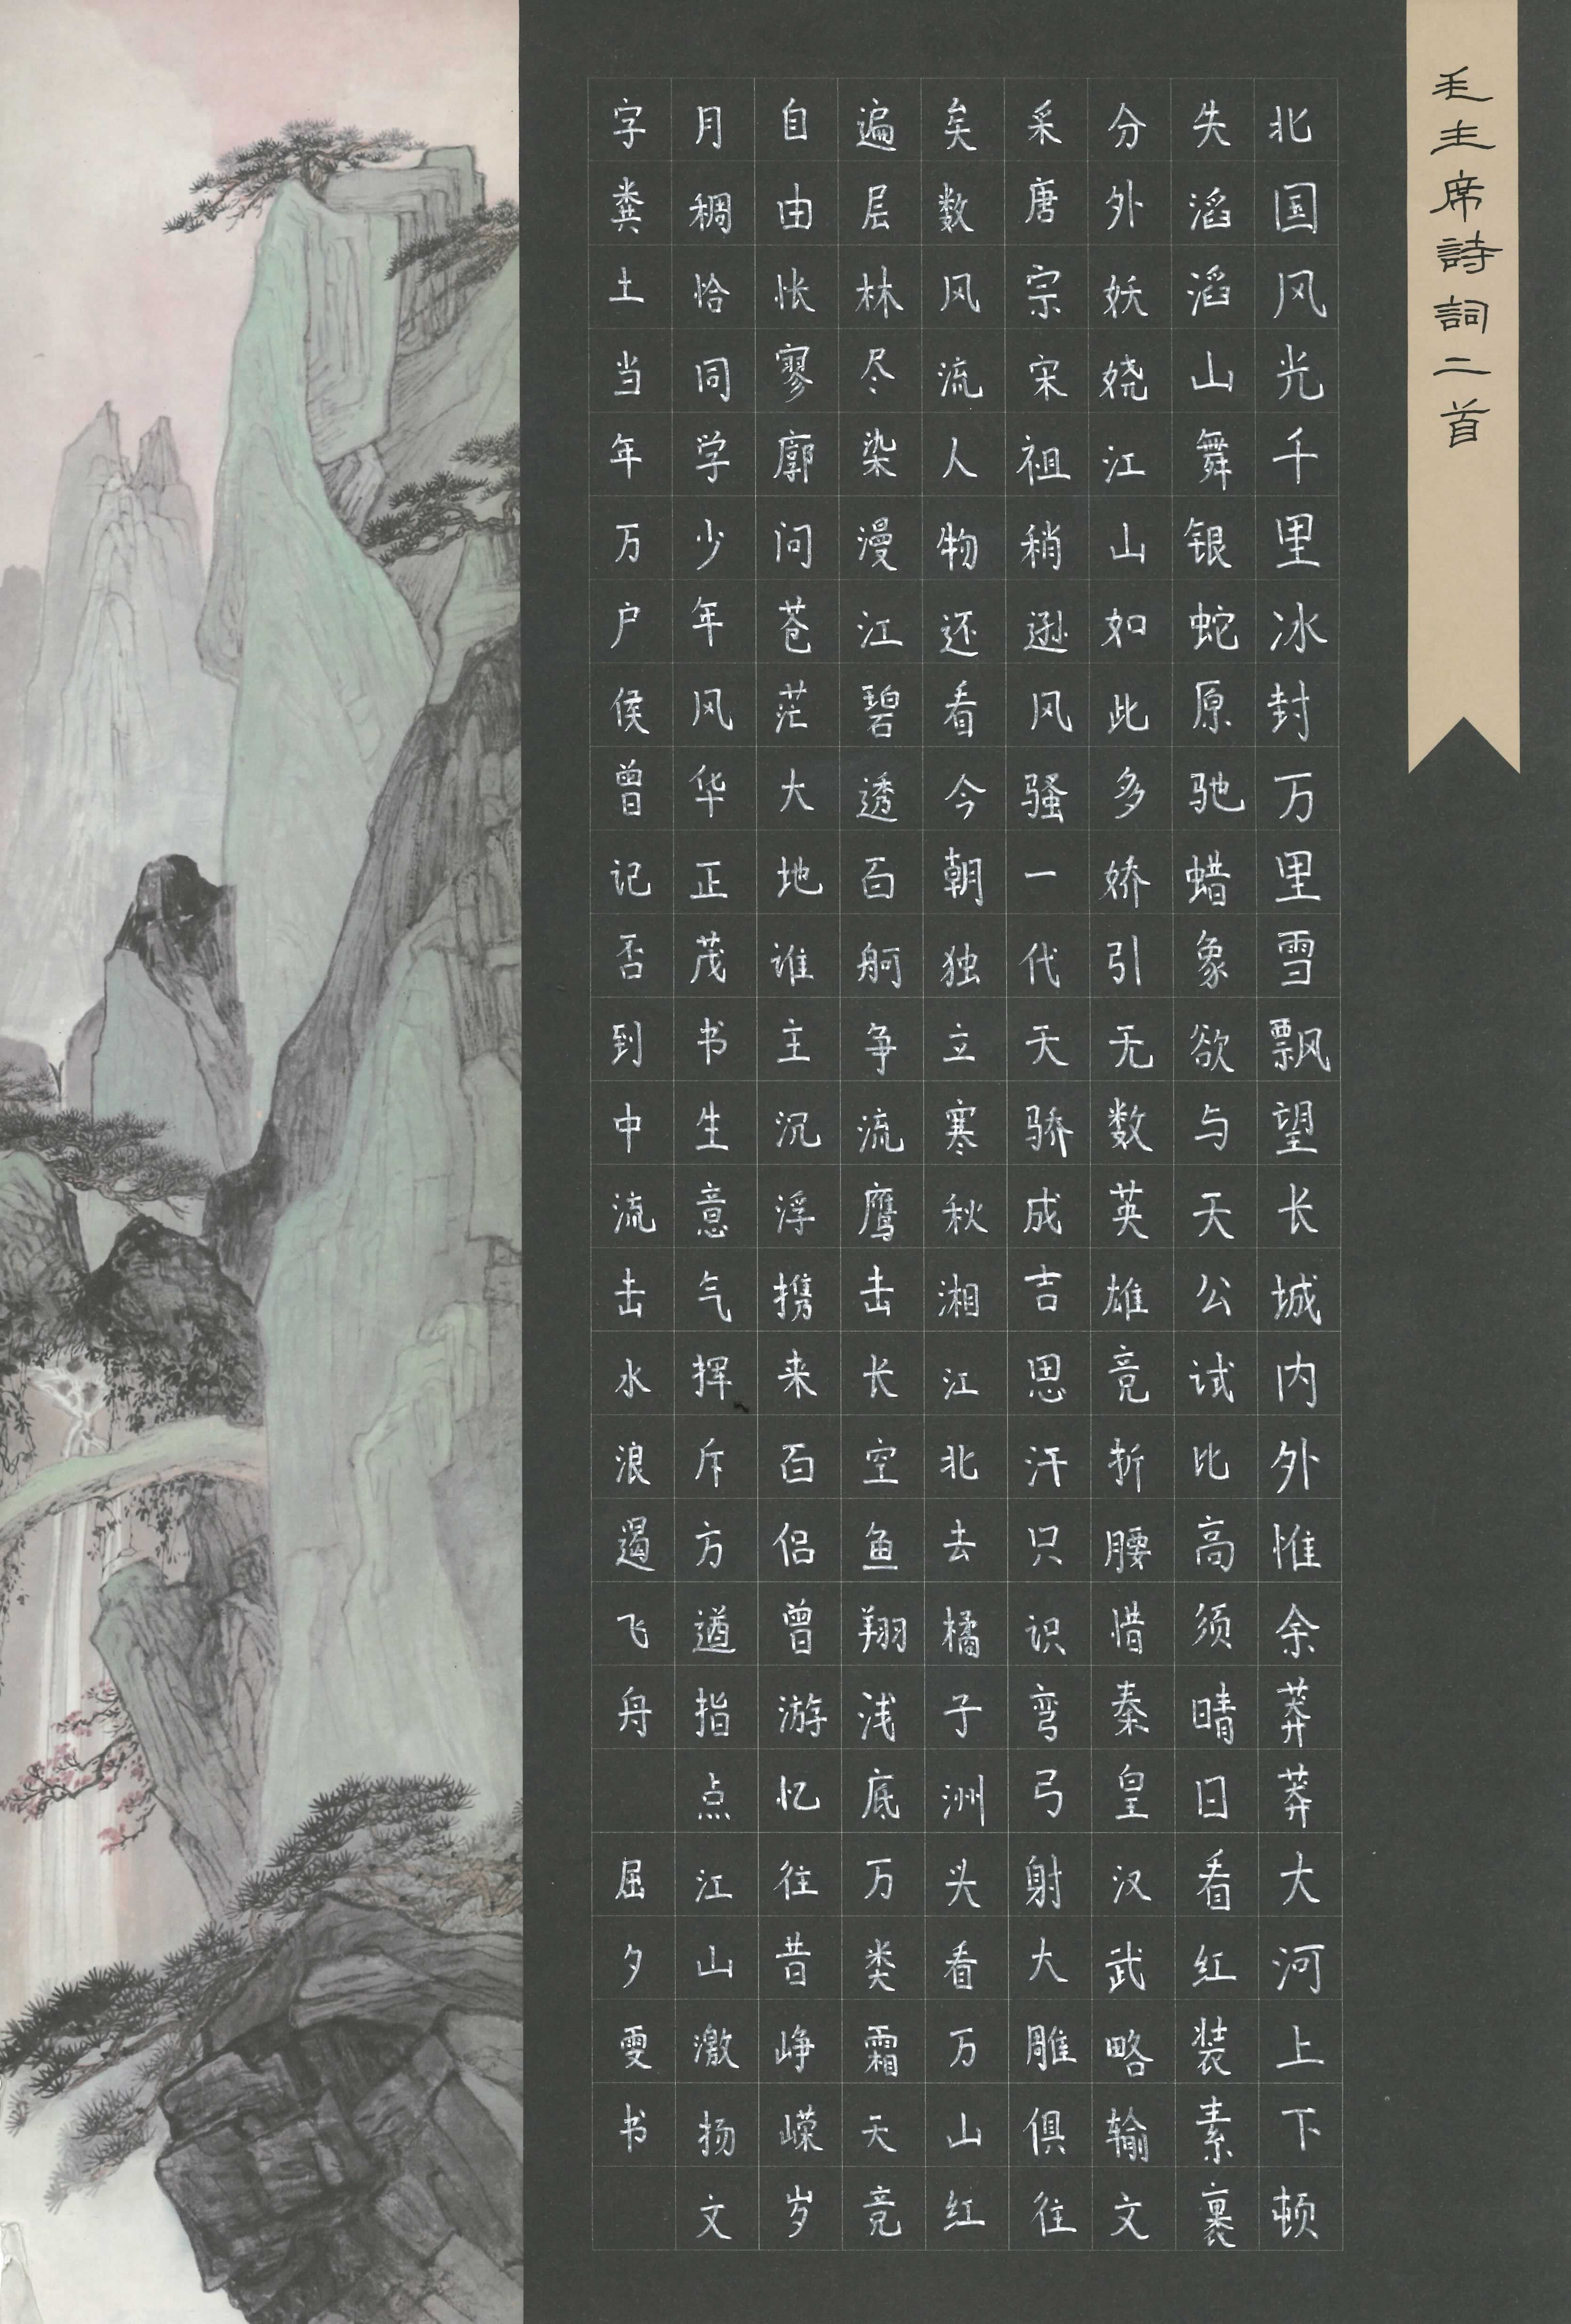 毛主席詩詞二首
北国风光千里冰封万里雪飘望长城内外惟余莽莽大河上下顿
失滔滔山舞银蛇原驰蜡象欲与天公试比高须晴日看红装素裹
分外妖娆江山如此多娇引无数英雄竞折腰惜秦皇汉武略输文
采唐宗宋祖稍逊风骚一代天骄成吉思汗只识弯弓射大雕俱往
矣数风流人物还看今朝独立寒秋湘江北去橘子洲头看万山红
遍层林尽染漫江碧透百舸争流鹰击长空鱼翔浅底万类霜天竞
自由怅寥廓问苍茫大地谁主沉浮携来百侣曾游忆往昔峥嵘岁
月稠恰同学少年风华正茂书生意气挥斥方遒指点江山激扬文
字粪土当年万户侯曾记否到中流击水浪遏飞舟 屈夕雯书